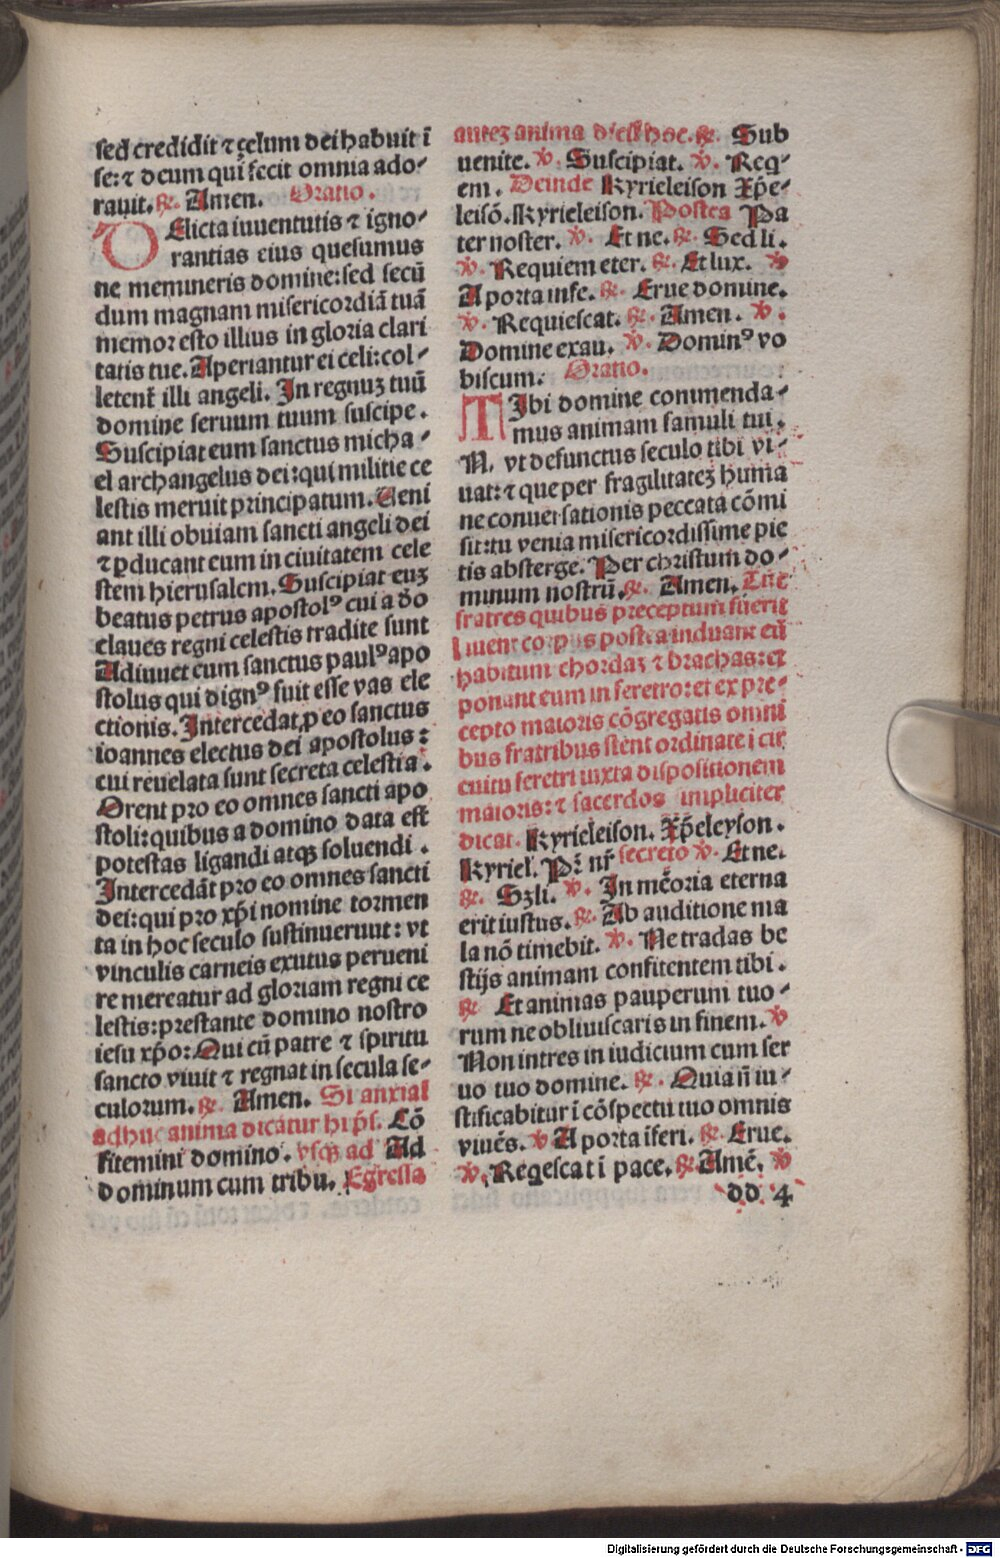 sed credidit ⁊ çelum dei habuit ī
se: ⁊ deum qui fecit omnia ado-
rauit. ℟. Amen. Oratio.
DElicta iuuentutis ⁊ igno-
rantias eius quesumus
ne memineris domine: sed secū
dum magnam misericordiā tuā
memor esto illius in gloria clari
tatis tue. Aperiantur ei celi: col-
letent᷑ illi angeli. In regnuꝫ tuū
domine seruum tuum suscipe.
Suscipiat eum sanctus micha-
el archangelus dei: qui militie ce
lestis meruit principatum. Ueni
ant illi obuiam sancti angeli dei
⁊ ꝑducant eum in ciuitatem cele
stem hierusalem. Suscipiat euꝫ
beatus petrus apostolꝰ cui a dō
claues regni celestis tradite sunt
Adiuuet eum sanctus paulꝰ apo
stolus qui dignꝰ fuit esse vas ele
ctionis. Intercedat p eo sanctus
ioannes electus dei apostolus:
cui reuelata sunt secreta celestia.
Orent pro eo omnes sancti apo
stoli: quibus a domino data est
potestas ligandi atqꝫ soluendi.
Intercedāt pro eo omnes sancti
dei: qui pro xp̄i nomine tormen
ta in hoc seculo sustinuerunt: vt
vinculis carneis exutus perueni
re mereatur ad gloriam regni ce
lestis: prestante domino nostro
iesu xp̄o: Qui cū patre ⁊ spiritu
sancto viuit ⁊ regnat in secula se-
culorum. ℟. Amen. Si anxiat
adhuc anima dicātur hi ps̄. Cō
fitemini domino. vsqꝫ ad Ad
dominum cum tribu. Egressa
auteꝫ anima hoc. ℟. Sub
uenite. ℣. Suscipiat. ℣. Req-
em. Deinde Kyrieleison Xp̄e-
leisō. Kyrieleison. Postea Pa
ter noster. ℣. Et ne. ℟. Sed li.
℣. Requiem eter. ℟. Et lux. ℣
A porta infe. ℟. Erue domine.
℣. Requiescat. ℟. Amen. ℣.
Domine exau. ℣. Dominꝰ vo
biscum: Oratio.
TIbi domine commenda-
mus animam famuli tui.
N. vt defunctus seculo tibi vi-
uat: ⁊ que per fragilitateꝫ huma
ne conuersationis peccata cōmi
sit: tu venia misericordissime pie
tis absterge. Per christum do-
minum nostrū. ℟. Amen. Tūc
fratres quibus preceptum fuerit
lauent corpus postea induant eū
habitum chordaꝫ ⁊ brachas: et
ponant eum in feretro: et ex pre-
cepto maioris cōgregatis omni
bus fratribus stent ordinate ī cir
cuitu feretri iuxta dispositionem
maioris: ⁊ sacerdos simpliciter
dicat. Kyrieleison. Xp̄eleyson.
Kyriel. Pr̄ nr̄ secreto ℣. Et ne.
℟. Sꝫ li. ℣. In mēoria eterna
erit iustus. ℟. Ab auditione ma
la nō timebit. ℣. Ne tradas be
stijs animam confitentem tibi.
℟ Et animas pauperum tuo-
rum ne obliuiscaris in finem. ℣
Non intres in iudicium cum ser
uo tuo domine. ℟. Quia ñ iu-
stificabitur ī cōspectu tuo omnis
viuēs. ℣ A porta īferi. ℟. Erue.
℣. Reqescat ī pace. ℟ Amē. ℣
dd 4
Digitalisierung gefördert durch die Deutsche Forschungsgemeinschaft - DFG